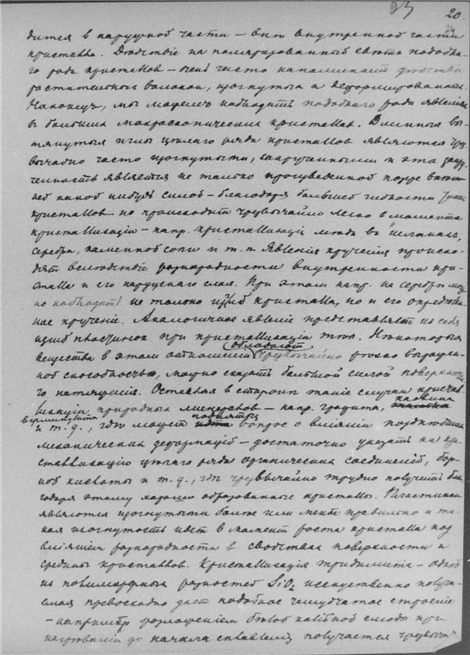 23 20
дится в наружной части – вне внутренной части
кристалла. Действие на поляризованный свет подобно-
го рода кристаллов – очень часто напоминает действие
растительных волокон, изогнутых и деформированных.
Наконец, мы можем наблюдать подобного рода явления
в больших макроскопических кристаллах. Длинные вы-
тянутые иглы целого ряда кристаллов являются чрез-
вычайно часто изогнутыми, закрученными и эта закру-
ченность является не только произведенной позже внеш-
ней какой нибудь силой – благодаря большей гибкости
кристаллов но происходит чрезвычайно легко в момент
кристаллизации – напр. кристаллизация льда в
серебра, каменной соли и т. п. Явления кручения происхо-
дят вследствие разнородности внутренности кри-
сталла и его наружного слоя. При этом напр. на серебре мож-
но наблюдать не только изгиб кристалла, но и его определен-
ное кручение. Аналогичное явление представляет из себя
изгиб пластинок при кристаллизации
Некоторые
вещества в этом отношении обладают чрезвычайно резко выражен-
ной способностью, можно сказать большой силой поверхност-
го натяжения. Оставляя в стороне такие случаи кристал-
лизации природных минералов – напр. графита,
и т. д., где может вопрос о влиянии позднейших
механических деформаций – достаточно указать на кри-
сталлизацию целого ряда органических соединений, бор-
ной кислоты и т. д., где чрезвычайно трудно получить бла-
годаря этому хорошо образованные кристаллы. Пластинки
являются изогнутыми более или менее правильно и та-
кая изогнутость идет в момент роста кристалла под
влиянием разнородности в свойствах поверхности и
средины кристаллов. Кристаллизация тридимита – одной
из полиморфных разностей SiO₂ искусственно получа-
емая превосходно дает подобное чешуйчатое строение
– например разложением белой калийной слюды при
нагревании до начала сплавления получается чрезвычай-